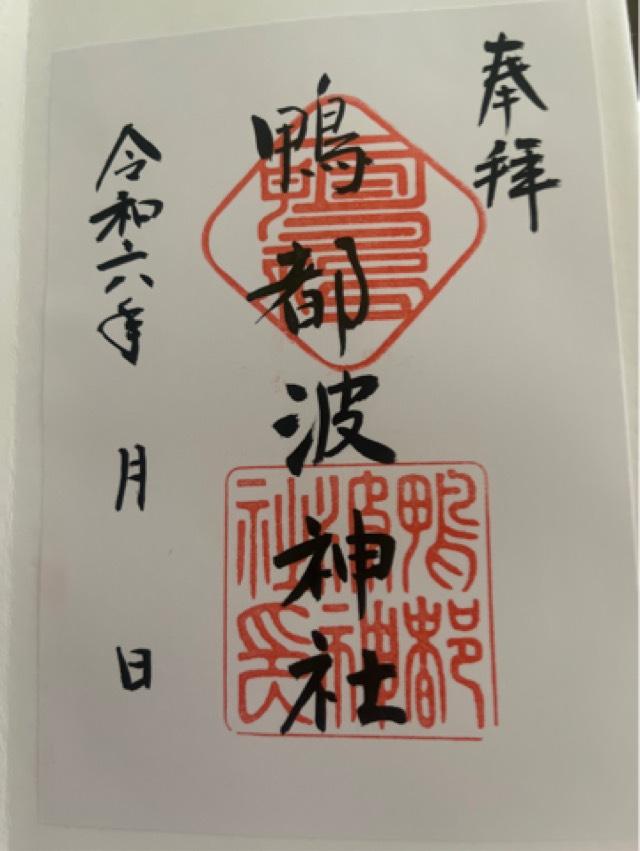 奉拝
鴨都波神社
令和六年 月 日
鴨都
波神
社長